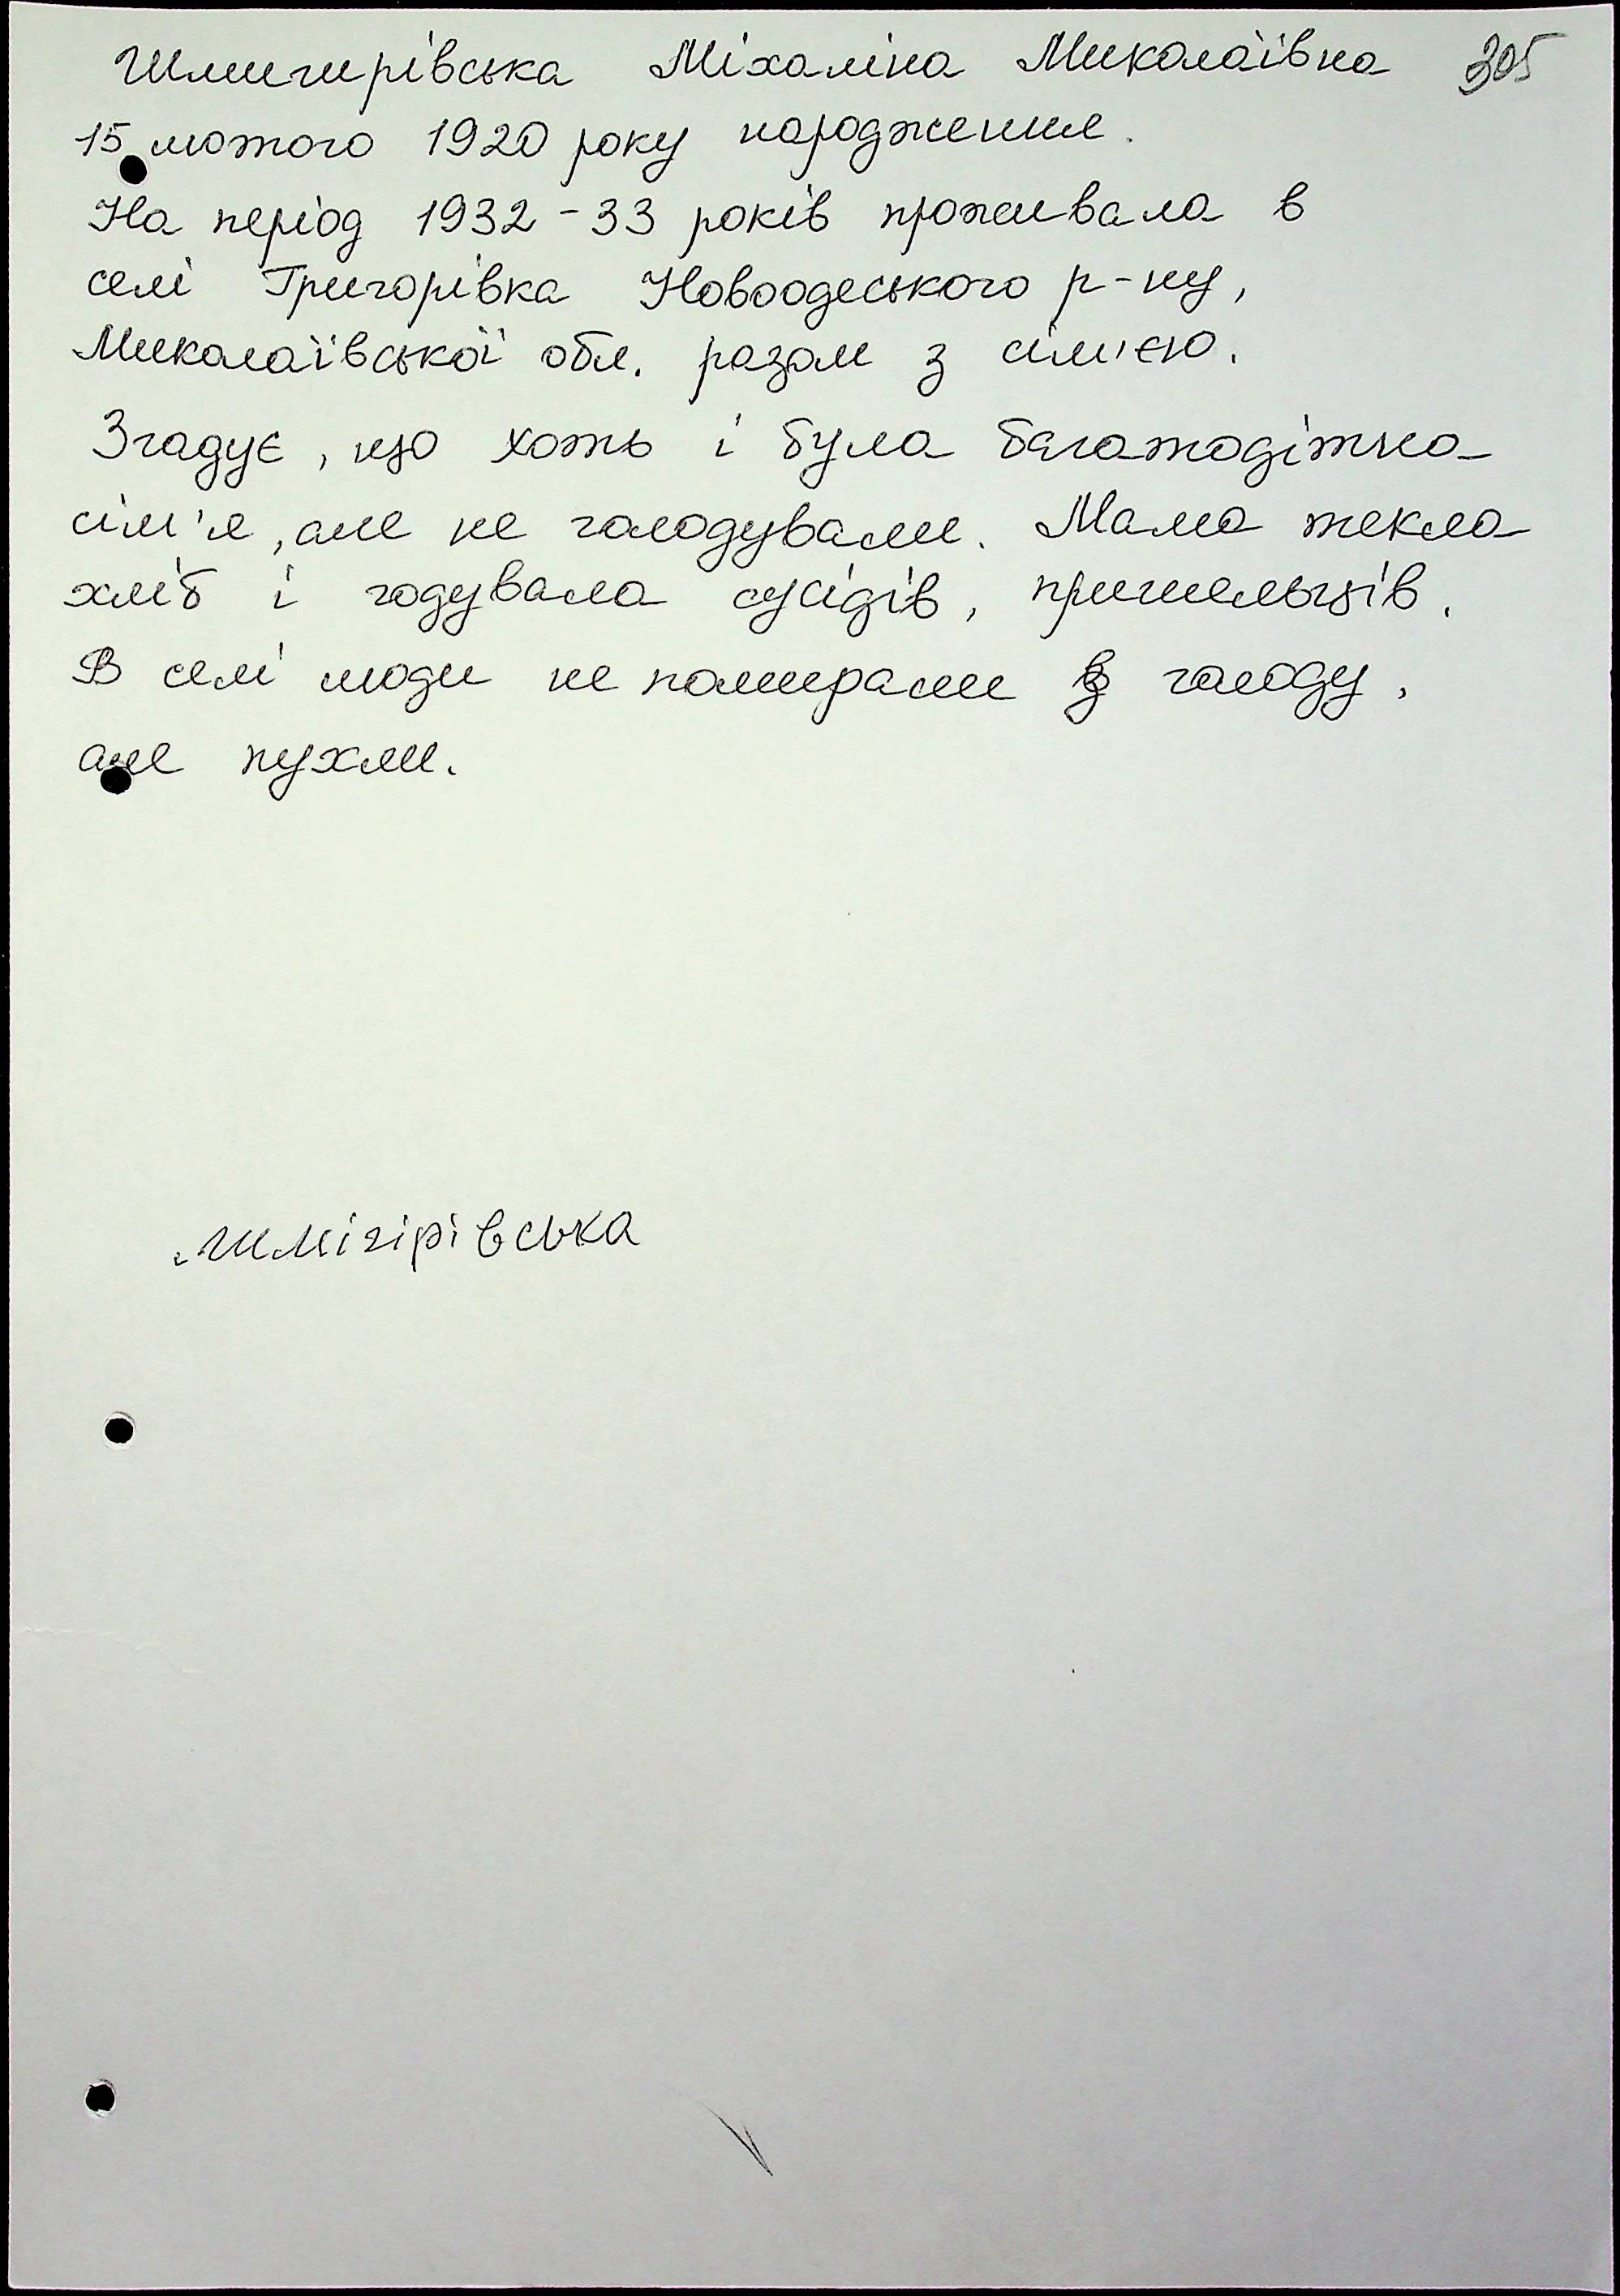 Шмигирівська Міхаліна Миколаївна 305
15 лютого 1920 року народження.
На період 1932-33 років проживала в
селі Григорівка Новоодеського р-ну,
Миколаївської обл. разом з сім'єю.
Згадує, що хоть і була багатодітна
сім'я, але не голодували. Мама пекла
хліб і годувала сусідів, пришельців.
В селі люди не помирали з голоду,
але пухли.
Шмігірівська